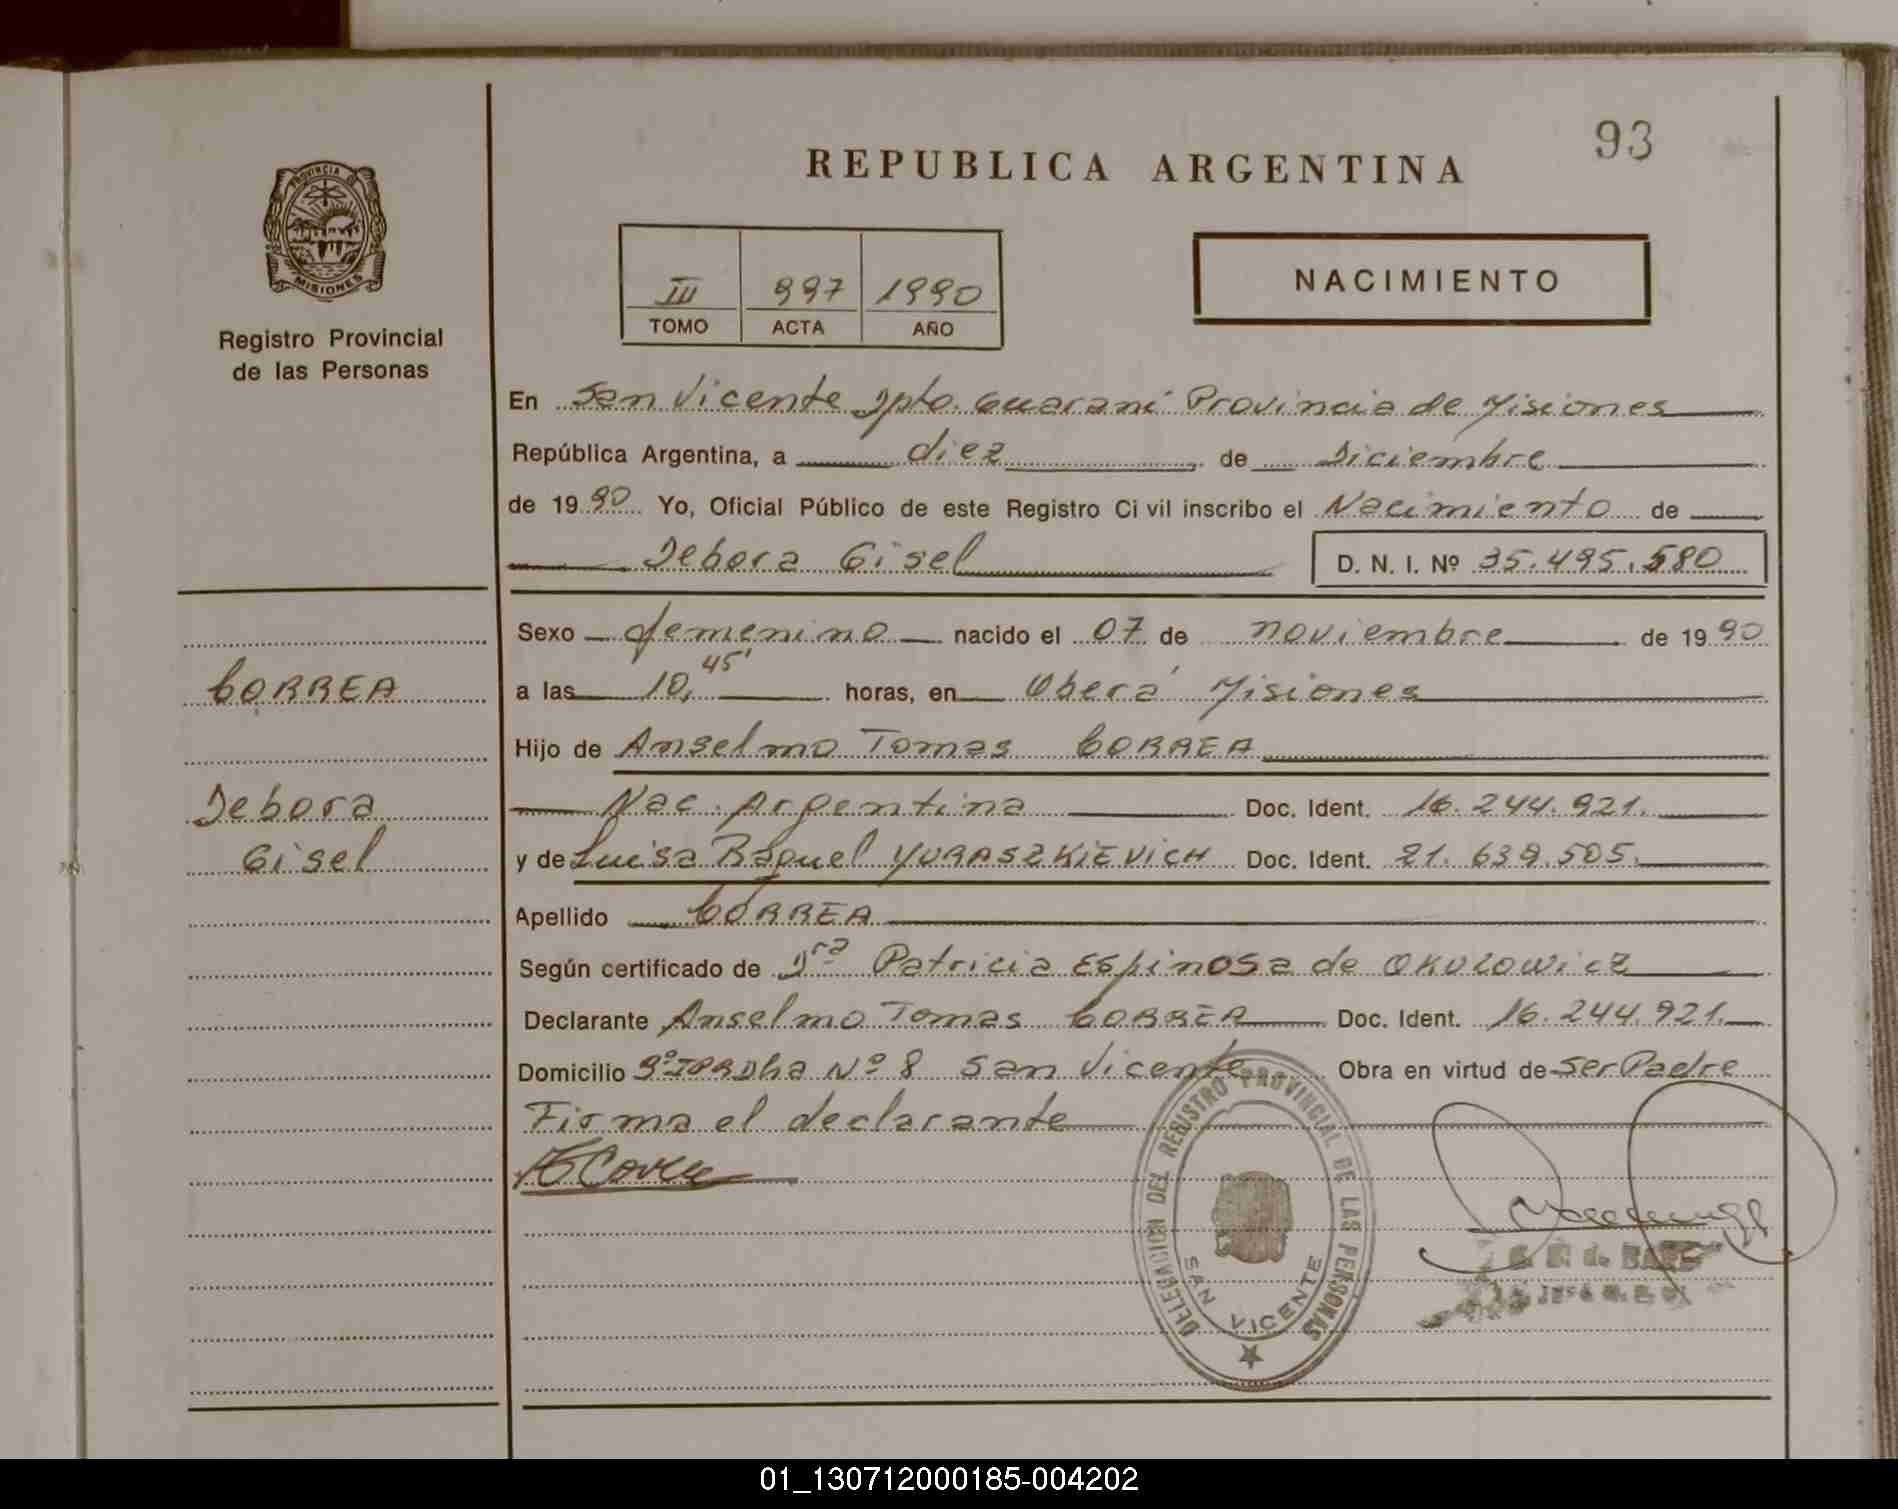 93
REPUBLICA ARGENTINA
PROVINCIA DE
MISIONES
Registro Provincial
de las Personas
III 997 1990
TOMO ACTA AÑO
NACIMIENTO
En San Vicente Dpto. Guaraní Provincia de Misiones
República Argentina, a diez de Diciembre
de 1990 Yo, Oficial Público de este Registro Civil inscribo el Nacimiento de
Debora Gisel D. N. I. Nº 35.495.580
Sexo femenino nacido el 07 de noviembre de 1990
CORREA
a las 10,45' horas, en Oberá Misiones
Hijo de Anselmo Tomas CORREA
Debora
Gisel
Nac. Argentina Doc. Ident. 16.244.921.
y de Luisa Raquel YURASZKIEVICH Doc. Ident. 21.639.505.
Apellido CORREA
Según certificado de Dra Patricia Espinosa de OKULOWICZ
Declarante Anselmo Tomas CORREA Doc. Ident. 16.244.921.
Domicilio Nº 8 San Vicente Obra en virtud de Ser Padre
Firma el declarante
DELEGACION DEL REGISTRO PROVINCIAL DE LAS PERSONAS
SAN VICENTE
01_130712000185-004202